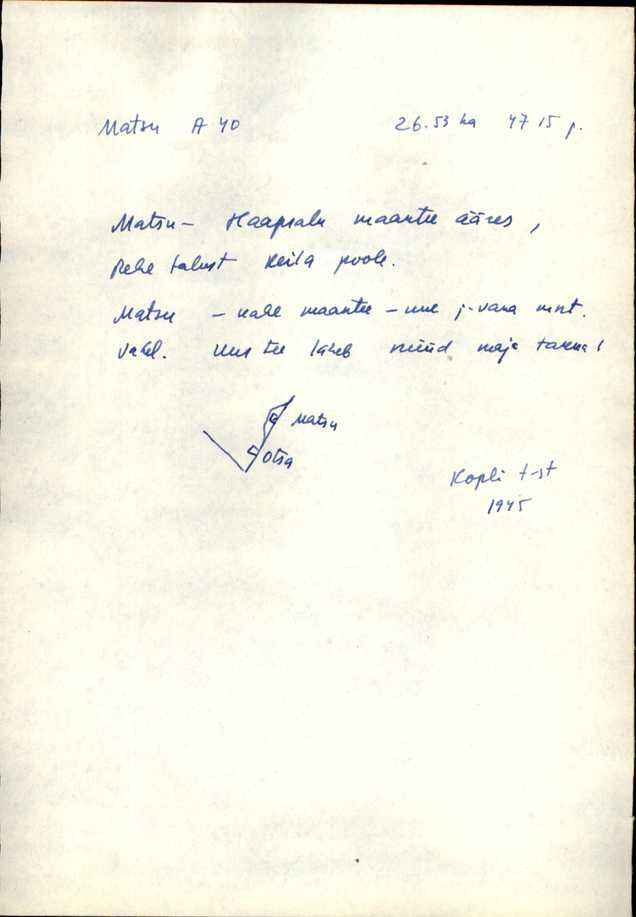 Matsu A 40 26.53 ha 47 15 p.
Matsu – Haapsalu maantee ääres,
Rehe talust Keila poole.
Matsu – kahe maantee – uue j. vana mnt.
vahel. Uus tee läheb nüüd maja taha!
Matsu
Otsa
Kopli t-st
1945